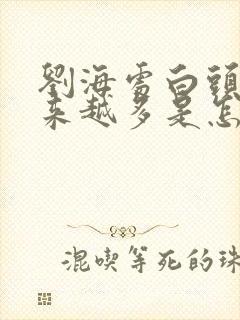 劉海處白頭
來越多是怎
混喫等死的珠